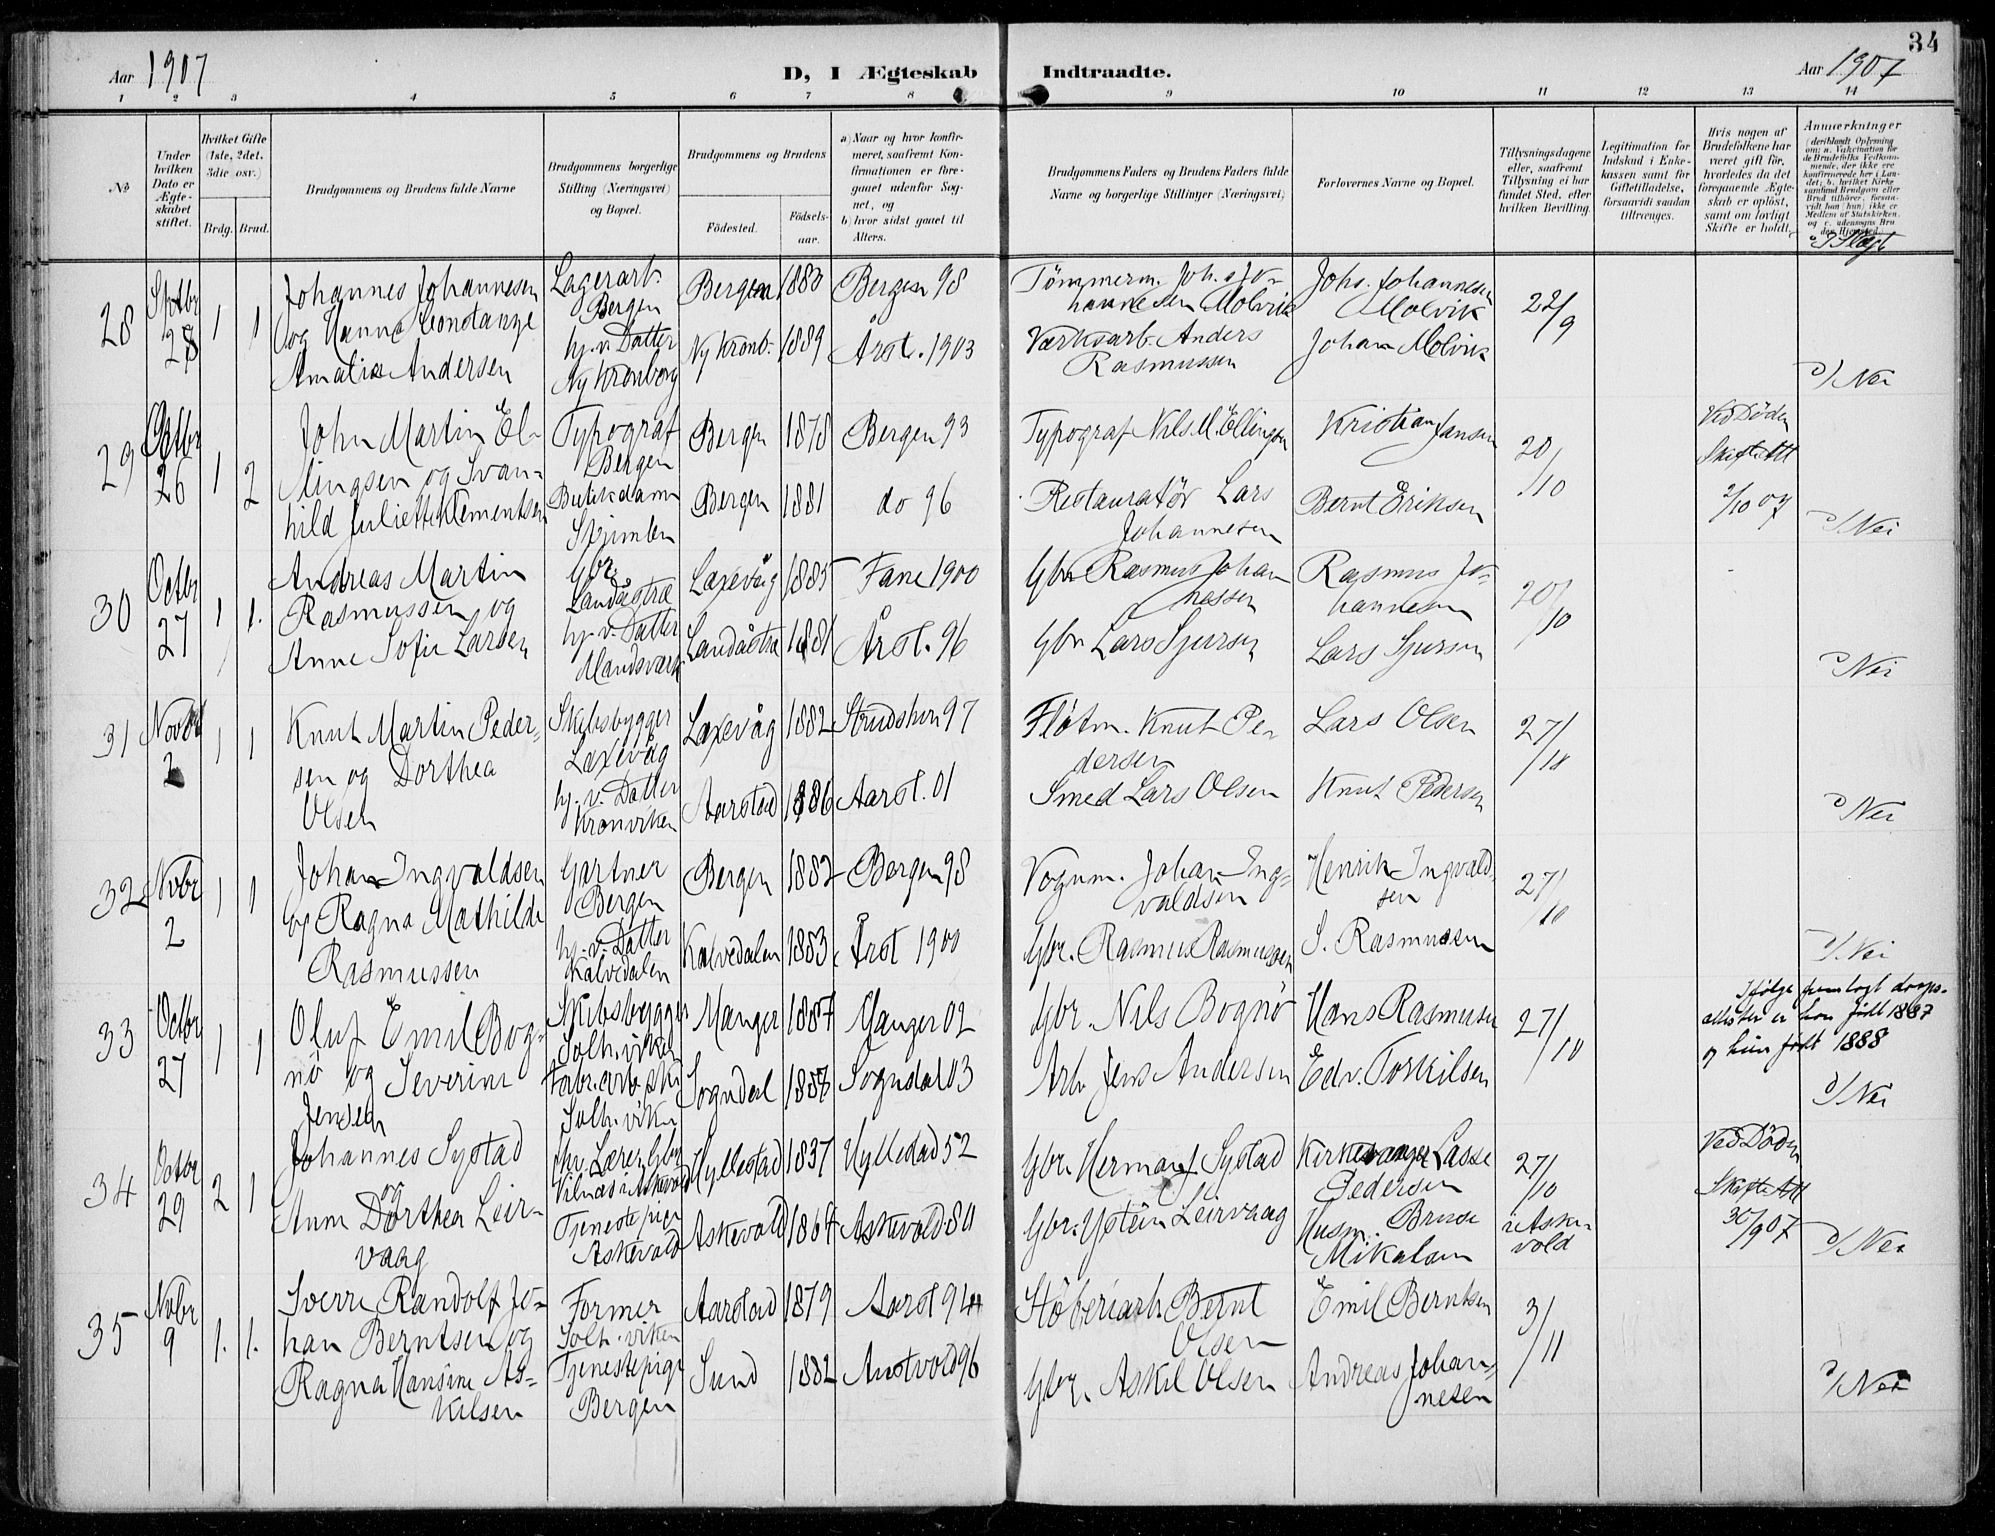 34
Aar 1907
D, I Ægteskab Indtraadte.
Aar 1907
1 2 3 4 5 6 7 8 9 10 11 12 13 14
No
Under hvilken Dato er Ægteskabet stiftet.
Hvilket Gifte (1ste, 2det, 3die osv.)
Brdg. Brud.
Brudgommens og Brudens fulde Navne
Brudgommens borgerlige Stilling (Næringsvei) og Bopæl.
Brudgommens og Brudens
Fødested.
Fødsels-aar.
a) Naar og hvor konfirmeret, saafremt Konfirmationen er foregaaet udenfor Sognet, og
b) hvor sidst gaaet til Alters.
Brudgommens Faders og Brudens Faders fulde Navne og borgerlige Stillinger (Næringsvei)
Forlovernes Navne og Bopæl.
Tillysningsdagene eller, saafremt Tillysning ei har fundet Sted, efter hvilken Bevilling.
Legitimation for Indskud i Enkekassen samt for Giftetilladelse, forsaavidt saadan tiltrænges.
Hvis nogen af Brudefolkene har været gift før, hvorledes da det foregaaende Ægteskab er opløst, samt om lovligt Skifte er holdt.
Anmærkninger
28
Sptbr 28
1 1
Johannes Johannesen
og Hanna Constanze
Amalie Andersen
Lagerarb.
Bergen
hj. v. Datter
Ny Kronborg
Bergen 1883 Bergen 98
Ny Kronb. 1889 Årst. 1903
Tømmerm. Joh.s Jo-
hannesen Molvik
Værksarb. Anders
Rasmussen
Johs. Johannesen
Molvik
Johan Molvik
22/9
Nei
29
Octbr 26
1 2
John Martin El-
lingsen og Svan-
hild Juliette Klementsen
Typograf
Bergen
Butikdame
Bergen 1878 Bergen 93
Bergen 1881 do 96
Typograf Nils M. Ellingsen
Restauratør Lars
Johannesen
Kristian Jansen
Bernt Eriksen
20/10
Ved Døden
Skifte Att
2/10 07
Nei
30
Octbr 27
1 1.
Andreas Martin
Rasmussen og
Anne Sofie Larsen
Gbr.
Landåstræ
hj. v. Datter
Laxevåg 1885 Fane 1900
Landåstræ 1881 Årst. 96
Gbr Rasmus Johan
nessen
Gbr Lars Sjursen
Rasmus Jo-
hannesen
Lars Sjursen
20/10
Nei
31
Novbr 2
1 1
Knut Martin Peder-
sen og Dorthea
Olsen
Skibsbygger
Laxevåg
hj. v. Datter
Kronviken
Laxevåg 1882 Strudshvn 97
Aarstad 1886 Aarst. 01
Fløtm. Knut Pe-
dersen
Smed Lars Olsen
Lars Olsen
Knut Pedersen
27/10
Nei
32
Nvbr 2
1 1
Johan Ingvaldsen
og Ragna Mathilde
Rasmussen
Gartner
Bergen
hj. v. Datter
Kalvedalen
Bergen 1882 Bergen 98
Kalvedalen 1883 Årst 1900
Vognm. Johan Ing-
valdsen
Gbr. Rasmus Rasmussen
Henrik Ingvald-
sen
J. Rasmussen
27/10
Nei
33
Octbr 27
1 1
Oluf Emil Bog-
nø og Severine
Jensen
Skibsbygger
Solh. viken
Fabr.arb.ske
Solh. viken
Manger 1887 Manger 02
Sogndal 1888 Sogndal 03
Gbr. Nils Bognø
Arb. Jens Andersen
Hans Rasmussen
Edv. Torkilsen
27/10
Ifølge fremlagt daaps-
attester er han født 1887
og hun født 1888
Nei
34
Octbr 29
2 1
Johannes Systad
og
Anne Dorthea Leir-
vaag
fhv. Lærer, Gbr
Vilnæs i Askevold
Tjenestepige
Askevold
Hyllestad 1837 Hyllestad 52
Askevold 1864 Askevold 80
Gbr. Herman J Systad
Gbr. Ystein Leirvaag
Kirkesanger Lasse
Pedersen
Husm. Bruse
Mikalsen
27/10
i Aske-
vold
Ved Døden
Skifte Att
30/9 07
Nei
35
Nvbr 9
1. 1.
Sverre Randolf Jo-
han Berntsen og
Ragna Hansine As-
kilsen
Former
Solh. viken
Tjenestepige
Bergen
Aarstad 1879 Aarst 94
Sund 1882 Austvold 96
Støberiarb. Bernt
Olsen
Gbr. Askil Olsen
Emil Berntsen
Andreas Johan-
nesen
3/11
Nei